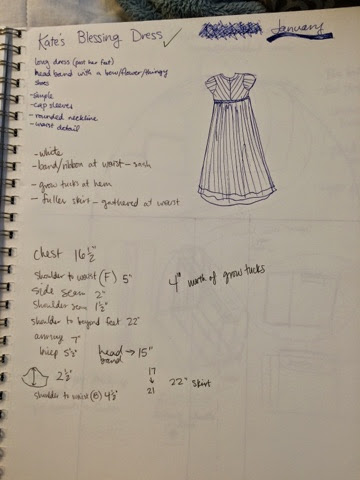 Kate's Blessing Dress ✓
January
long dress (past her feet)
head band with a bow/flower/thingy
shoes
- simple
- cap sleeves
- rounded neckline
- waist detail
- white
- band/ribbon at waist - sash
- grow tucks at hem
- fuller skirt - gathered at waist
chest 16 1/2"
shoulder to waist (F) 5"
4" worth of grow tucks
side seam 2"
shoulder seam 1 1/2"
shoulder to beyond feet 22"
armeye 7"
bicep 5 1/2" head band → 15"
2 1/2"
17
6
21
22" skirt
shoulder to waist (B) 4 1/2"